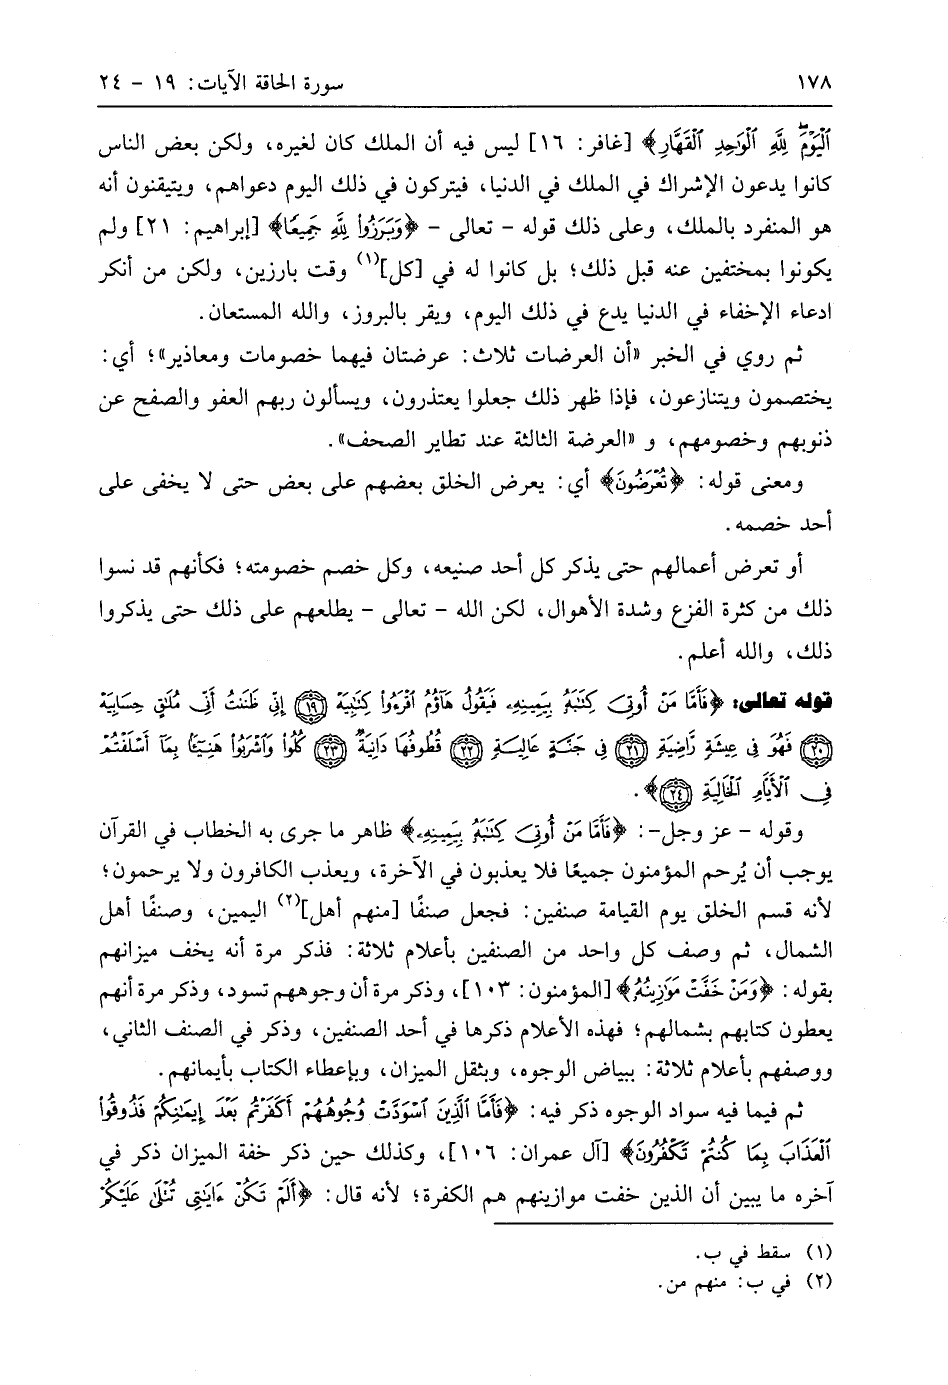 ١٧٨ سورة الحاقة الآيات: ١٩ - ٢٤
ٱلۡيَوۡمَۖ لِلَّهِ ٱلۡوَٰحِدِ ٱلۡقَهَّارِ﴾ [غافر: ١٦] ليس فيه أن الملك كان لغيره، ولكن بعض الناس
كانوا يدعون الإشراك في الملك في الدنيا، فيتركون في ذلك اليوم دعواهم، ويتيقنون أنه
هو المنفرد بالملك، وعلى ذلك قوله - تعالى - ﴿وَبَرَزُواْ لِلَّهِ جَمِيعٗا﴾ [إبراهيم: ٢١] ولم
يكونوا بمختفين عنه قبل ذلك؛ بل كانوا له في [كل](١) وقت بارزين، ولكن من أنكر
ادعاء الإخفاء في الدنيا يدع في ذلك اليوم، ويقر بالبروز، والله المستعان.
ثم روي في الخبر «أن العرضات ثلاث: عرضتان فيهما خصومات ومعاذير»؛ أي:
يختصمون ويتنازعون، فإذا ظهر ذلك جعلوا يعتذرون، ويسألون ربهم العفو والصفح عن
ذنوبهم وخصومهم، و «العرضة الثالثة عند تطاير الصحف».
ومعنى قوله: ﴿تُعۡرَضُونَ﴾ أي: يعرض الخلق بعضهم على بعض حتى لا يخفى على
أحد خصمه.
أو تعرض أعمالهم حتى يذكر كل أحد صنيعه، وكل خصم خصومته؛ فكأنهم قد نسوا
ذلك من كثرة الفزع وشدة الأهوال، لكن الله - تعالى - يطلعهم على ذلك حتى يذكروا
ذلك، والله أعلم.
قوله تعالى: ﴿فَأَمَّا مَنۡ أُوتِيَ كِتَٰبَهُۥ بِيَمِينِهِۦ فَيَقُولُ هَآؤُمُ ٱقۡرَءُواْ كِتَٰبِيَهۡ ١٩ إِنِّي ظَنَنتُ أَنِّي مُلَٰقٍ حِسَابِيَهۡ
٢٠ فَهُوَ فِي عِيشَةٖ رَّاضِيَةٖ ٢١ فِي جَنَّةٍ عَالِيَةٖ ٢٢ قُطُوفُهَا دَانِيَةٞ ٢٣ كُلُواْ وَٱشۡرَبُواْ هَنِيٓـَٔۢا بِمَآ أَسۡلَفۡتُمۡ
فِي ٱلۡأَيَّامِ ٱلۡخَالِيَةِ ٢٤﴾.
وقوله - عز وجل-: ﴿فَأَمَّا مَنۡ أُوتِيَ كِتَٰبَهُۥ بِيَمِينِهِۦ﴾ ظاهر ما جرى به الخطاب في القرآن
يوجب أن يُرحم المؤمنون جميعًا فلا يعذبون في الآخرة، ويعذب الكافرون ولا يرحمون؛
لأنه قسم الخلق يوم القيامة صنفين: فجعل صنفًا [منهم أهل](٢) اليمين، وصنفًا أهل
الشمال، ثم وصف كل واحد من الصنفين بأعلام ثلاثة: فذكر مرة أنه يخف ميزانهم
بقوله: ﴿وَمَنۡ خَفَّتۡ مَوَٰزِينُهُۥ﴾ [المؤمنون: ١٠٣]، وذكر مرة أن وجوههم تسود، وذكر مرة أنهم
يعطون كتابهم بشمالهم؛ فهذه الأعلام ذكرها في أحد الصنفين، وذكر في الصنف الثاني،
ووصفهم بأعلام ثلاثة: ببياض الوجوه، وبثقل الميزان، وبإعطاء الكتاب بأيمانهم.
ثم فيما فيه سواد الوجوه ذكر فيه: ﴿فَأَمَّا ٱلَّذِينَ ٱسۡوَدَّتۡ وُجُوهُهُمۡ أَكَفَرۡتُم بَعۡدَ إِيمَٰنِكُمۡ فَذُوقُواْ
ٱلۡعَذَابَ بِمَا كُنتُمۡ تَكۡفُرُونَ﴾ [آل عمران: ١٠٦]، وكذلك حين ذكر خفة الميزان ذكر في
آخره ما يبين أن الذين خفت موازينهم هم الكفرة؛ لأنه قال: ﴿أَلَمۡ تَكُنۡ ءَايَٰتِي تُتۡلَىٰ عَلَيۡكُمۡ
(١) سقط في ب.
(٢) في ب: منهم من.